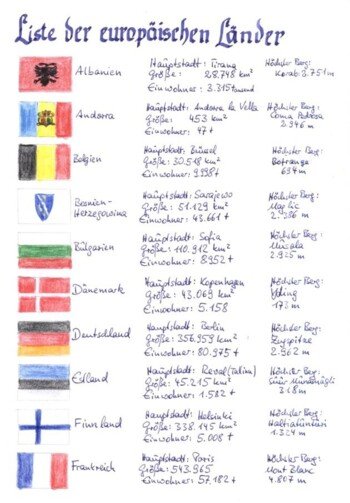 Liste der europäischen Länder
Albanien
Hauptstadt: Tirana
Größe: 28.748 km²
Einwohner: 3.315 tausend
Höchster Berg:
Korab 2.751 m
Andorra
Hauptstadt: Andorra la Vella
Größe: 453 km²
Einwohner: 47 t
Höchster Berg:
Coma Pedrosa
2.946 m
Belgien
Hauptstadt: Brüssel
Größe: 30.518 km²
Einwohner: 9.998 t
Höchster Berg:
Botrange
694 m
Bosnien-
Herzegowina
Hauptstadt: Sarajewo
Größe: 51.129 km²
Einwohner: 43.661 t
Höchster Berg:
Maglic
2.386 m
Bulgarien
Hauptstadt: Sofia
Größe: 110.912 km²
Einwohner: 8952 t
Höchster Berg:
Musala
2.925 m
Dänemark
Hauptstadt: Kopenhagen
Größe: 43.069 km²
Einwohner: 5.158
Höchster Berg:
Yding
173 m
Deutschland
Hauptstadt: Berlin
Größe: 356.959 km²
Einwohner: 80.975 t
Höchster Berg:
Zugspitze
2.962 m
Estland
Hauptstadt: Reval (Talinn)
Größe: 45.215 km²
Einwohner: 1.582 t
Höchster Berg:
Suur Munamägi
318 m
Finnland
Hauptstadt: Helsinki
Größe: 338.145 km²
Einwohner: 5.008 t
Höchster Berg:
Haltiatunturi
1.324 m
Frankreich
Hauptstadt: Paris
Größe: 543.965
Einwohner: 57.182 t
Höchster Berg:
Mont Blanc
4.807 m